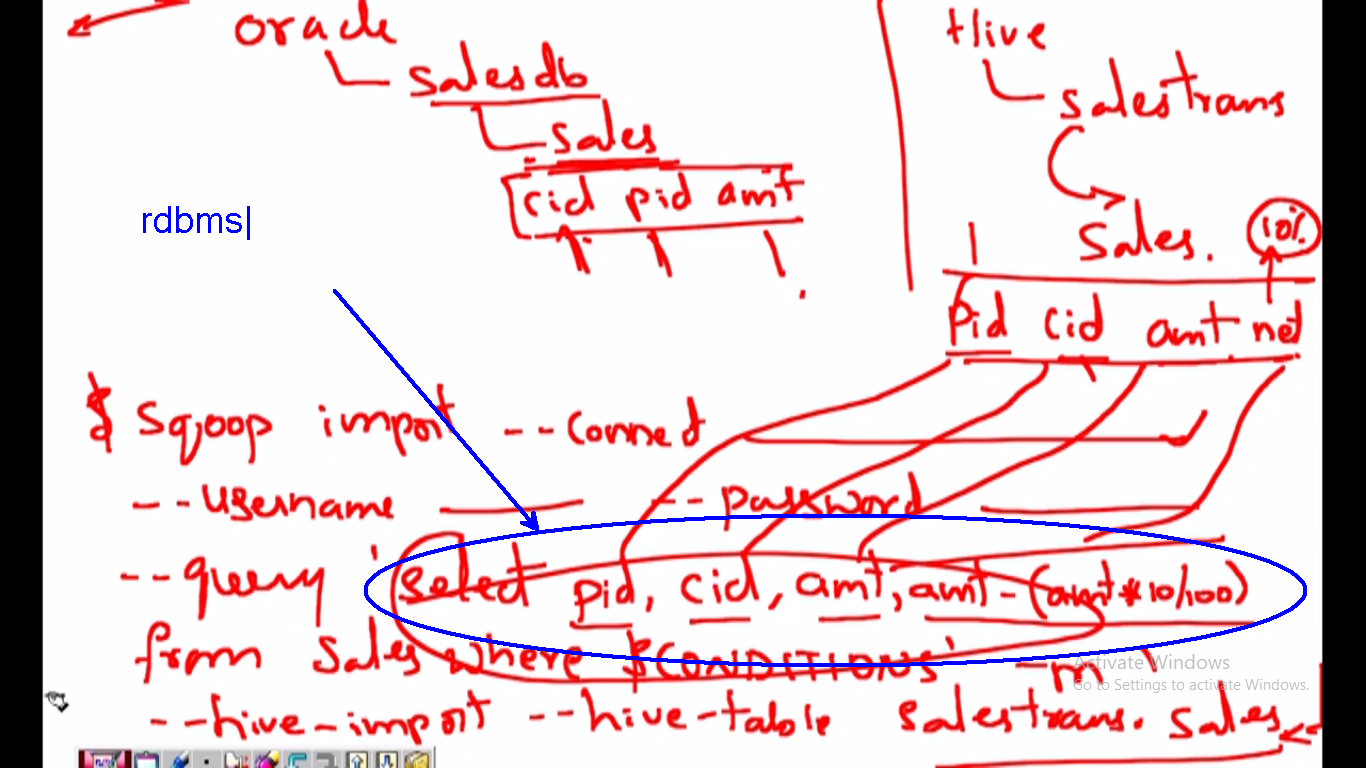 oracle
salesdb
sales
cid pid amt
Hive
salestrans
Sales. 10%
Pid cid amt net
rdbms
$ sqoop import --connect
--username --password
--query 'select pid, cid, amt, amt-(amt*10/100)
from sales where $CONDITIONS' -m 1
--hive-import --hive-table salestrans.sales
Activate Windows
Go to Settings to activate Windows.